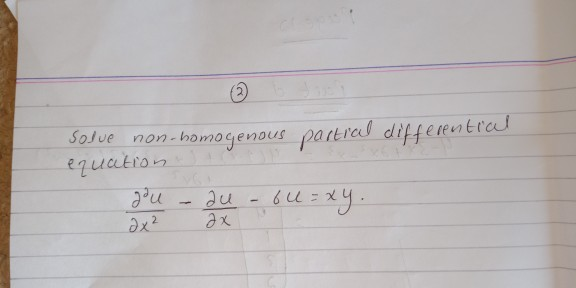 ②
Solve non-homogenous partial differential
equation
∂²u/∂x² - ∂u/∂x - 6u = xy.